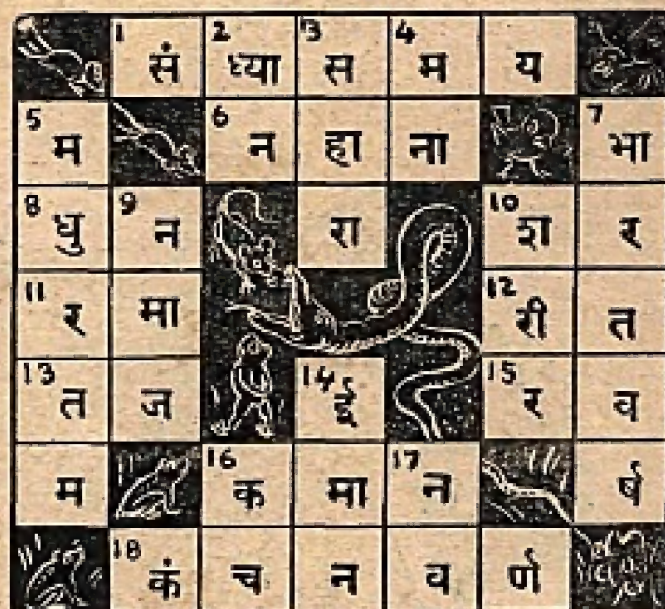 1 सं 2 ध्या 3 स 4 म य
5 म 6 न हा ना 7 भा
8 धु 9 न रा 10 श र
11 र मा 12 री त
13 त ज 14 ई 15 र व
म 16 क मा 17 न र्ष
18 कं च न व र्ण